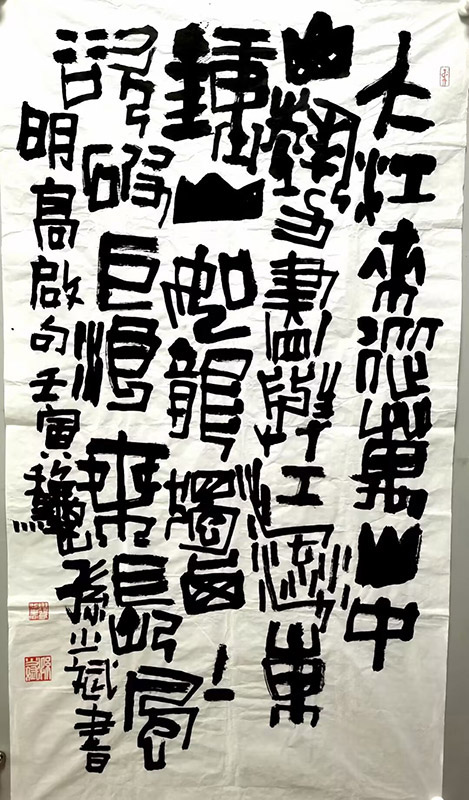 大江來從萬山中
山勢盡與江流東
鍾山如龍獨西上
欲破巨浪乘長風
明高啟句壬寅
孫 斌書